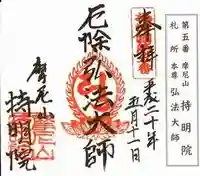 第五番 摩尼山 持明院
札所 本尊 弘法大師
奉拝
平成二十年
五月十一日
厄除弘法大師
摩尼山
持明院